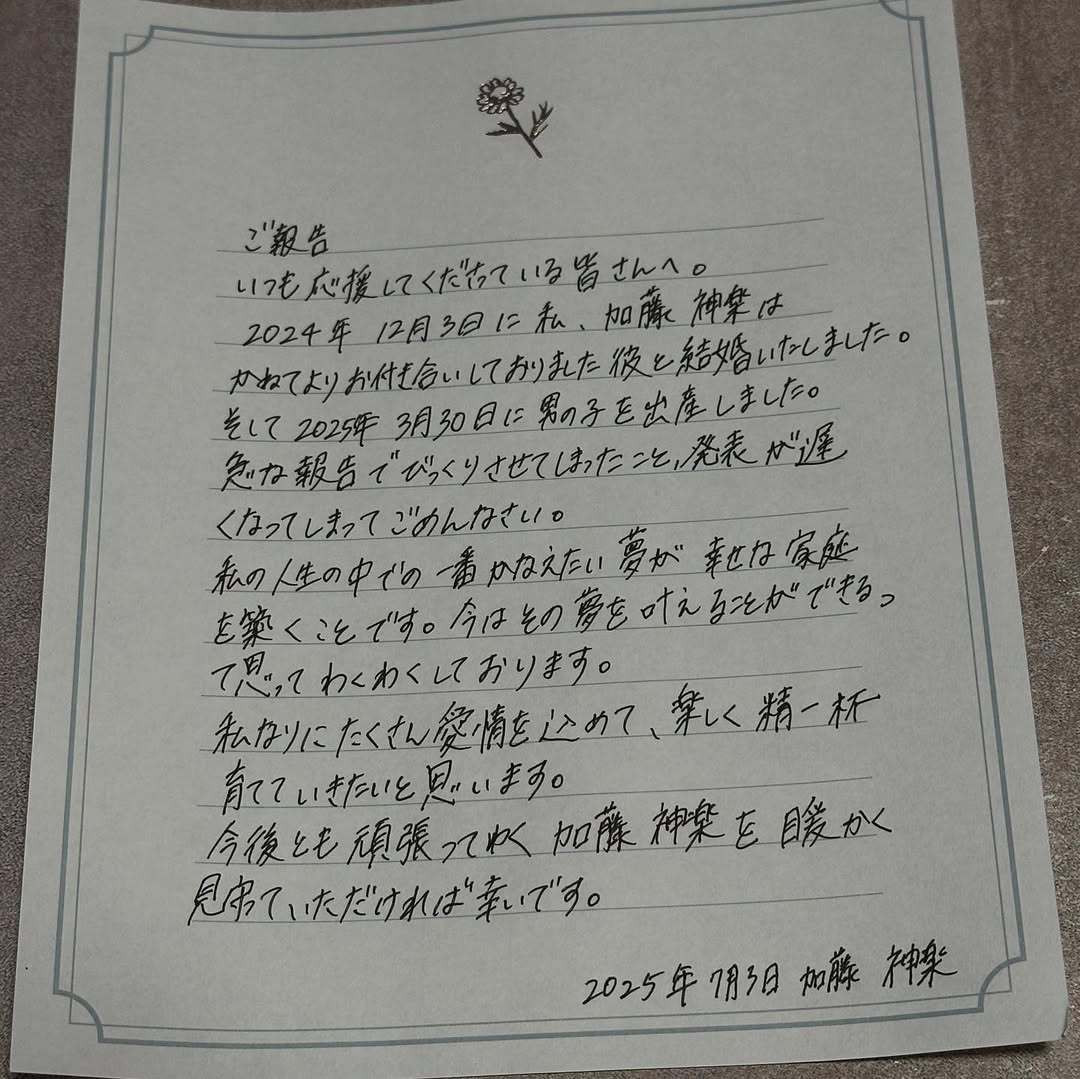 ご報告
いつも応援してくださっている皆さんへ。
2024年 12月3日に私、加藤 神楽は
かねてよりお付き合いしておりました彼と結婚いたしました。
そして2025年 3月30日に男の子を出産しました。
急な報告でびっくりさせてしまったこと、発表が遅
くなってしまってごめんなさい。
私の人生の中での一番かなえたい夢が 幸せな家庭
を築くことです。今はその夢を叶えることができるっ
て思ってわくわくしております。
私なりにたくさん愛情を込めて、楽しく精一杯
育てていきたいと思います。
今後とも頑張ってゆく 加藤 神楽を 暖かく
見守っていただければ幸いです。
2025年 7月3日 加藤 神楽